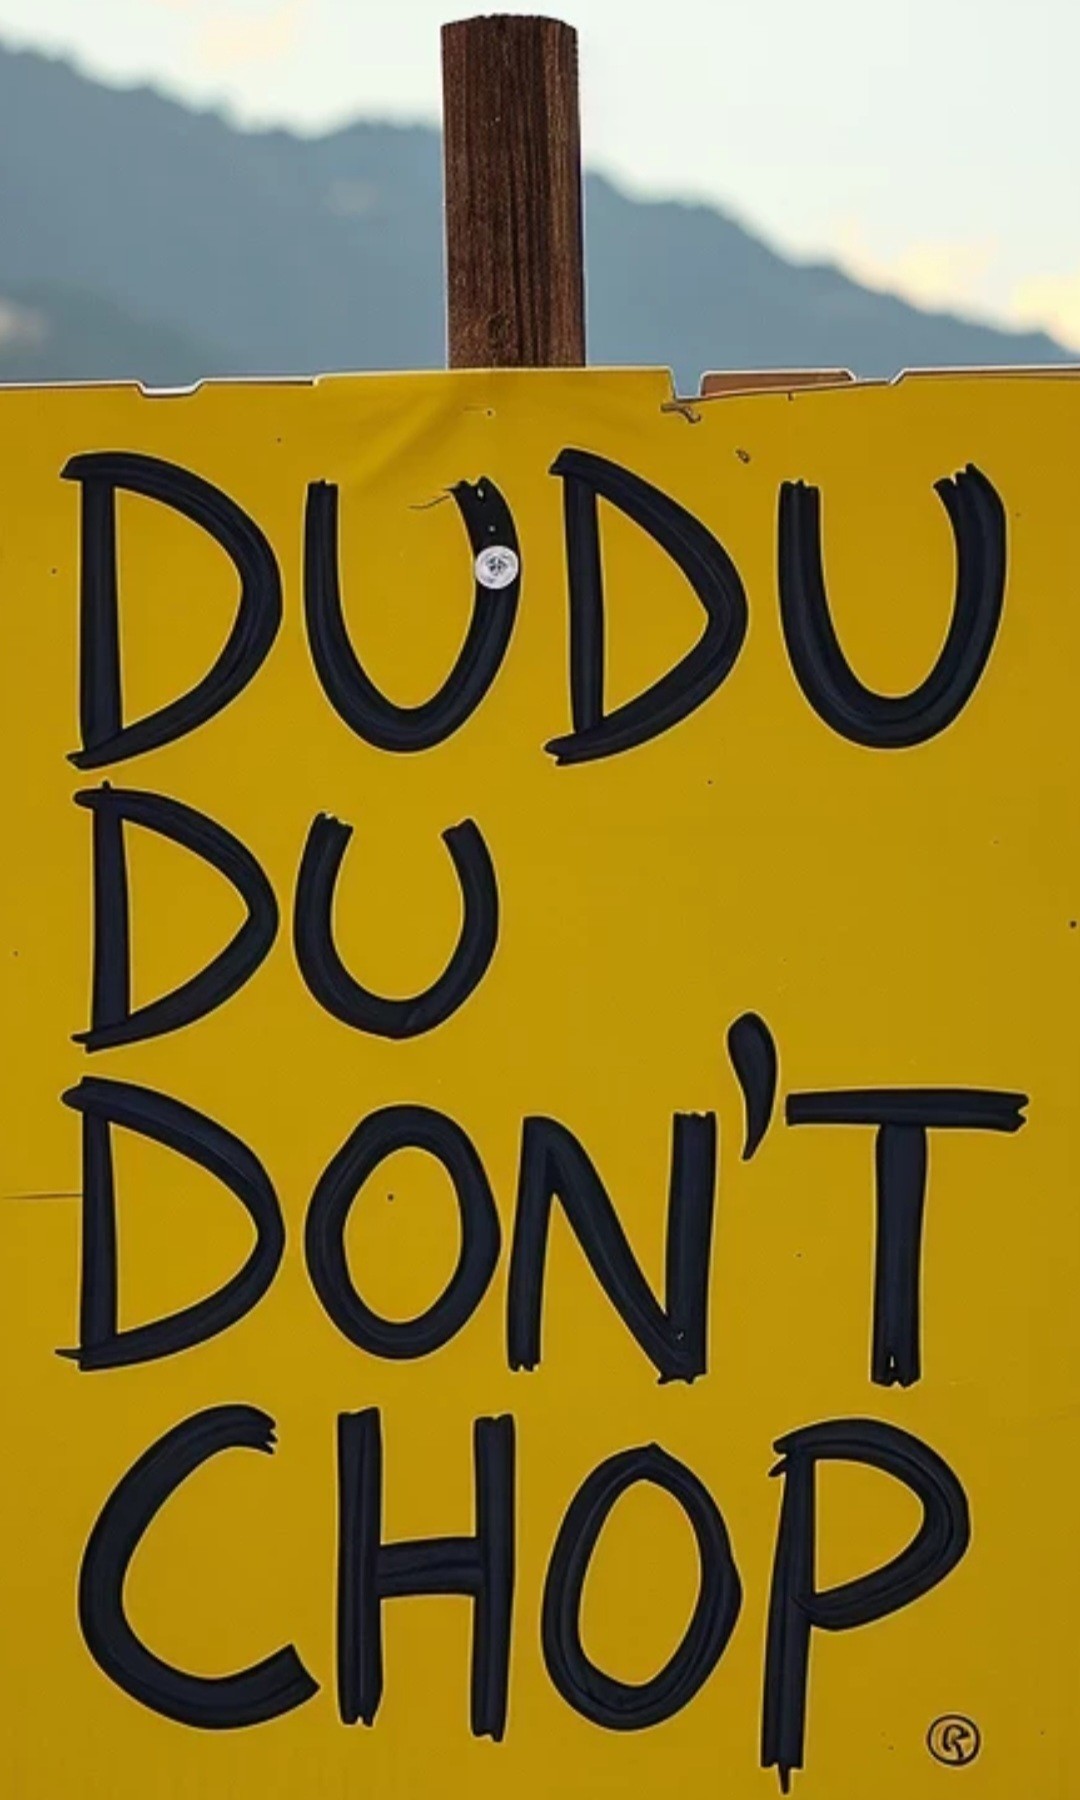 DUDU
DU
DON'T
CHOP
®